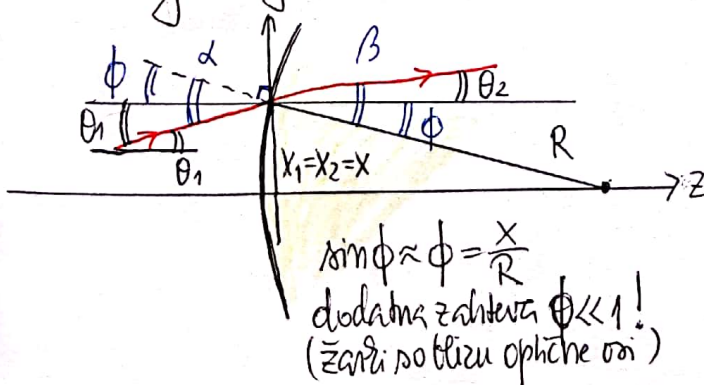 ϕ α β
θ2
θ1 θ1
ϕ
x1=x2=x
R
z
sinϕ≈ϕ=x/R
dodatna zahteva ϕ<<1!
(žarki so blizu optične osi)